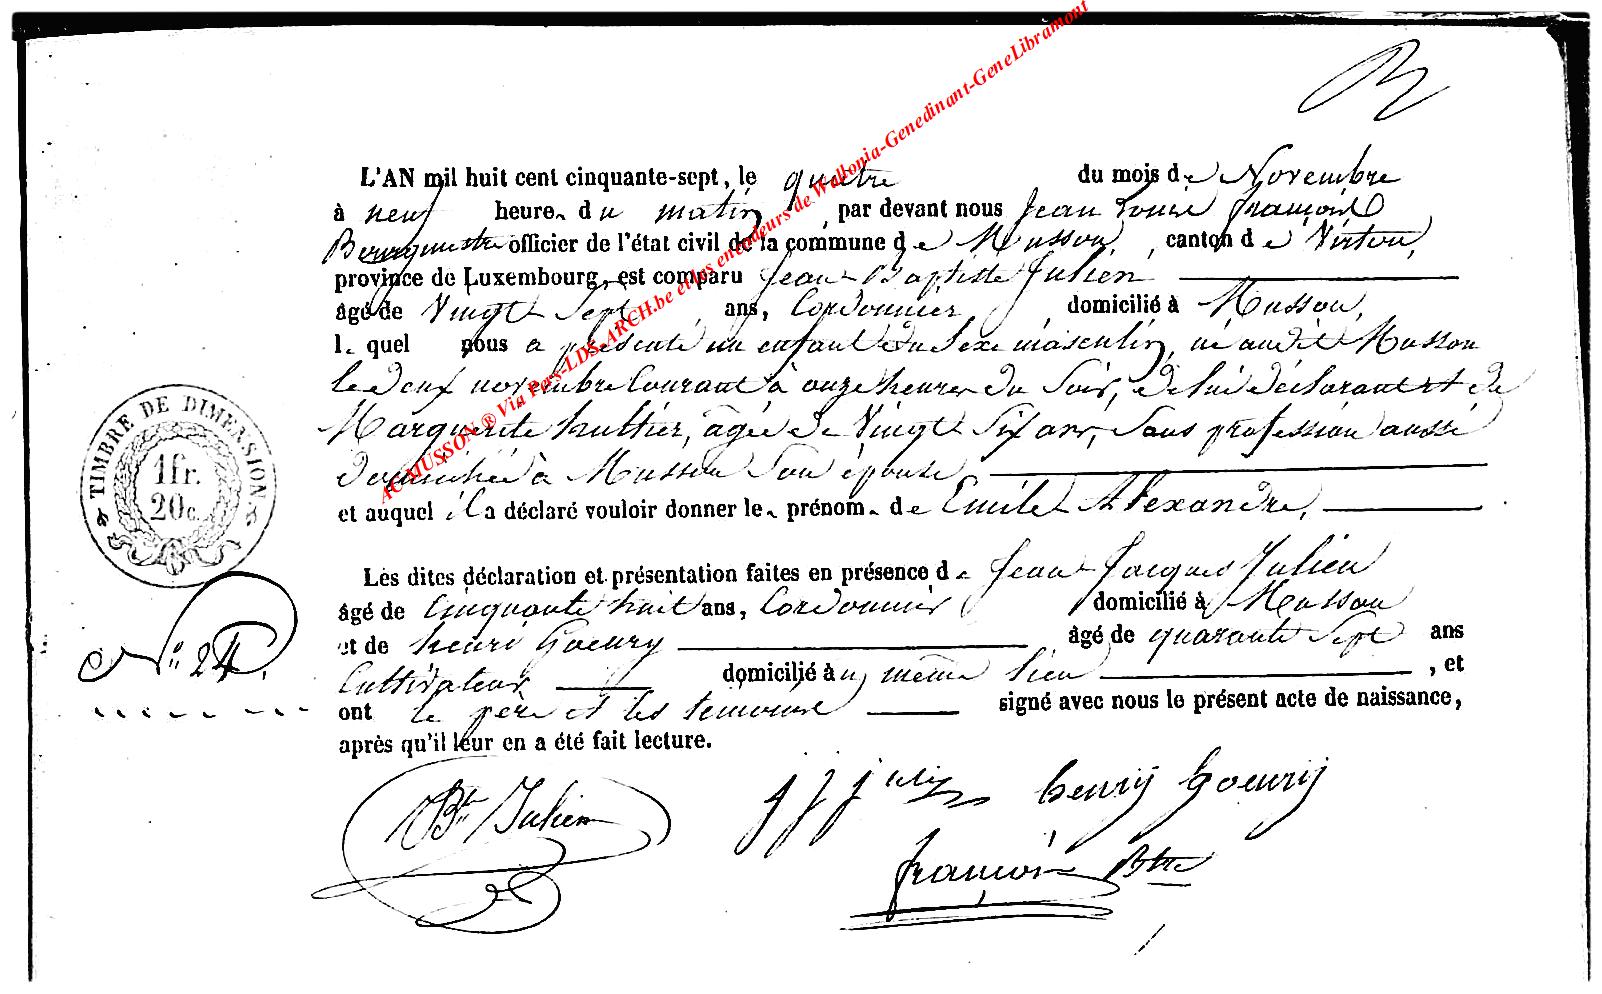 L'AN mil huit cent cinquante-sept, le quatre du mois de Novembre
à neuf heure du matin, par devant nous Jean Louis François
Bourgmestre officier de l'état civil de la commune de Musson, canton de Virton,
province de Luxembourg, est comparu Jean Baptiste Julien
âgé de Vingt Sept ans, Cordonnier domicilié à Musson,
le quel nous a présenté un enfant du Sexe masculin, né audit Musson
le deux novembre Courant à onze heures du Soir, de lui déclarant et de
Marguerite hultier, agée de Vingt Six ans, Sans profession aussi
domiciliée à Musson Son épouse
et auquel il a déclaré vouloir donner le prénom de Emile Alexandre,
Les dites déclaration et présentation faites en présence de Jean Jacques Julien
âgé de Cinquante huit ans, Cordonnier domicilié à Musson
et de henri Goeury âgé de quarante Sept ans
Cultivateur domicilié au même lieu, et
ont le père et les témoins signé avec nous le présent acte de naissance,
après qu'il leur en a été fait lecture.
TIMBRE DE DIMENSION
1 fr.
20 c.
N° 24.
JBte Julien
j j julien henry Goeury
françois Btre
AC MUSSON ® Via Pars-LDS-ARCH.be et les encodeurs de Wallonia-Genedinant-GeneLibramont